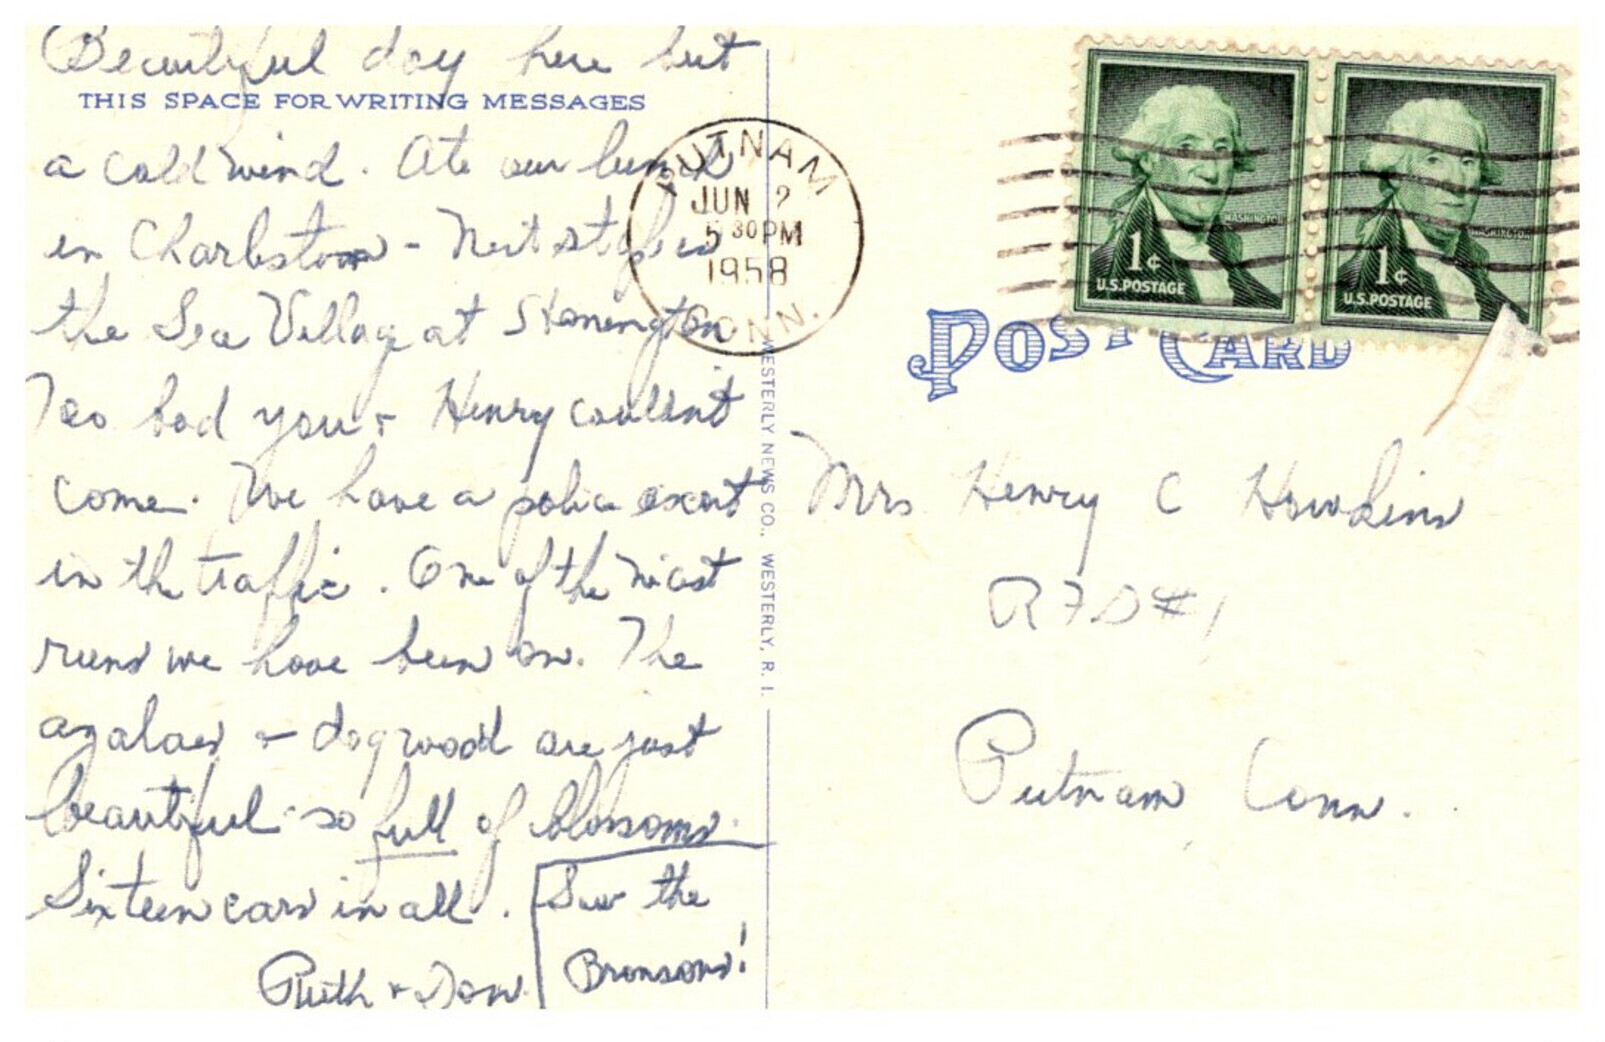 Beautiful day here but
THIS SPACE FOR WRITING MESSAGES
a cold wind. Ate our lunch
in Charlestown - Next stop is
the Sea Village at Stonington
Too bad you & Henry couldn't
come. We have a police escort
in the traffic. One of the nicest
runs we have been on. The
azaleas & dogwood are just
beautiful - so full of blossoms.
Sixteen cars in all.
Ruth & Don
Saw the
Bronsons!
WESTERLY NEWS CO., WESTERLY, R. I.
PUTNAM
JUN 2
5 30 PM
1958
CONN.
WASHINGTON
1¢
U.S. POSTAGE
WASHINGTON
1¢
U.S. POSTAGE
POST CARD
Mrs Henry C Hawkins
RFD #1
Putnam Conn.